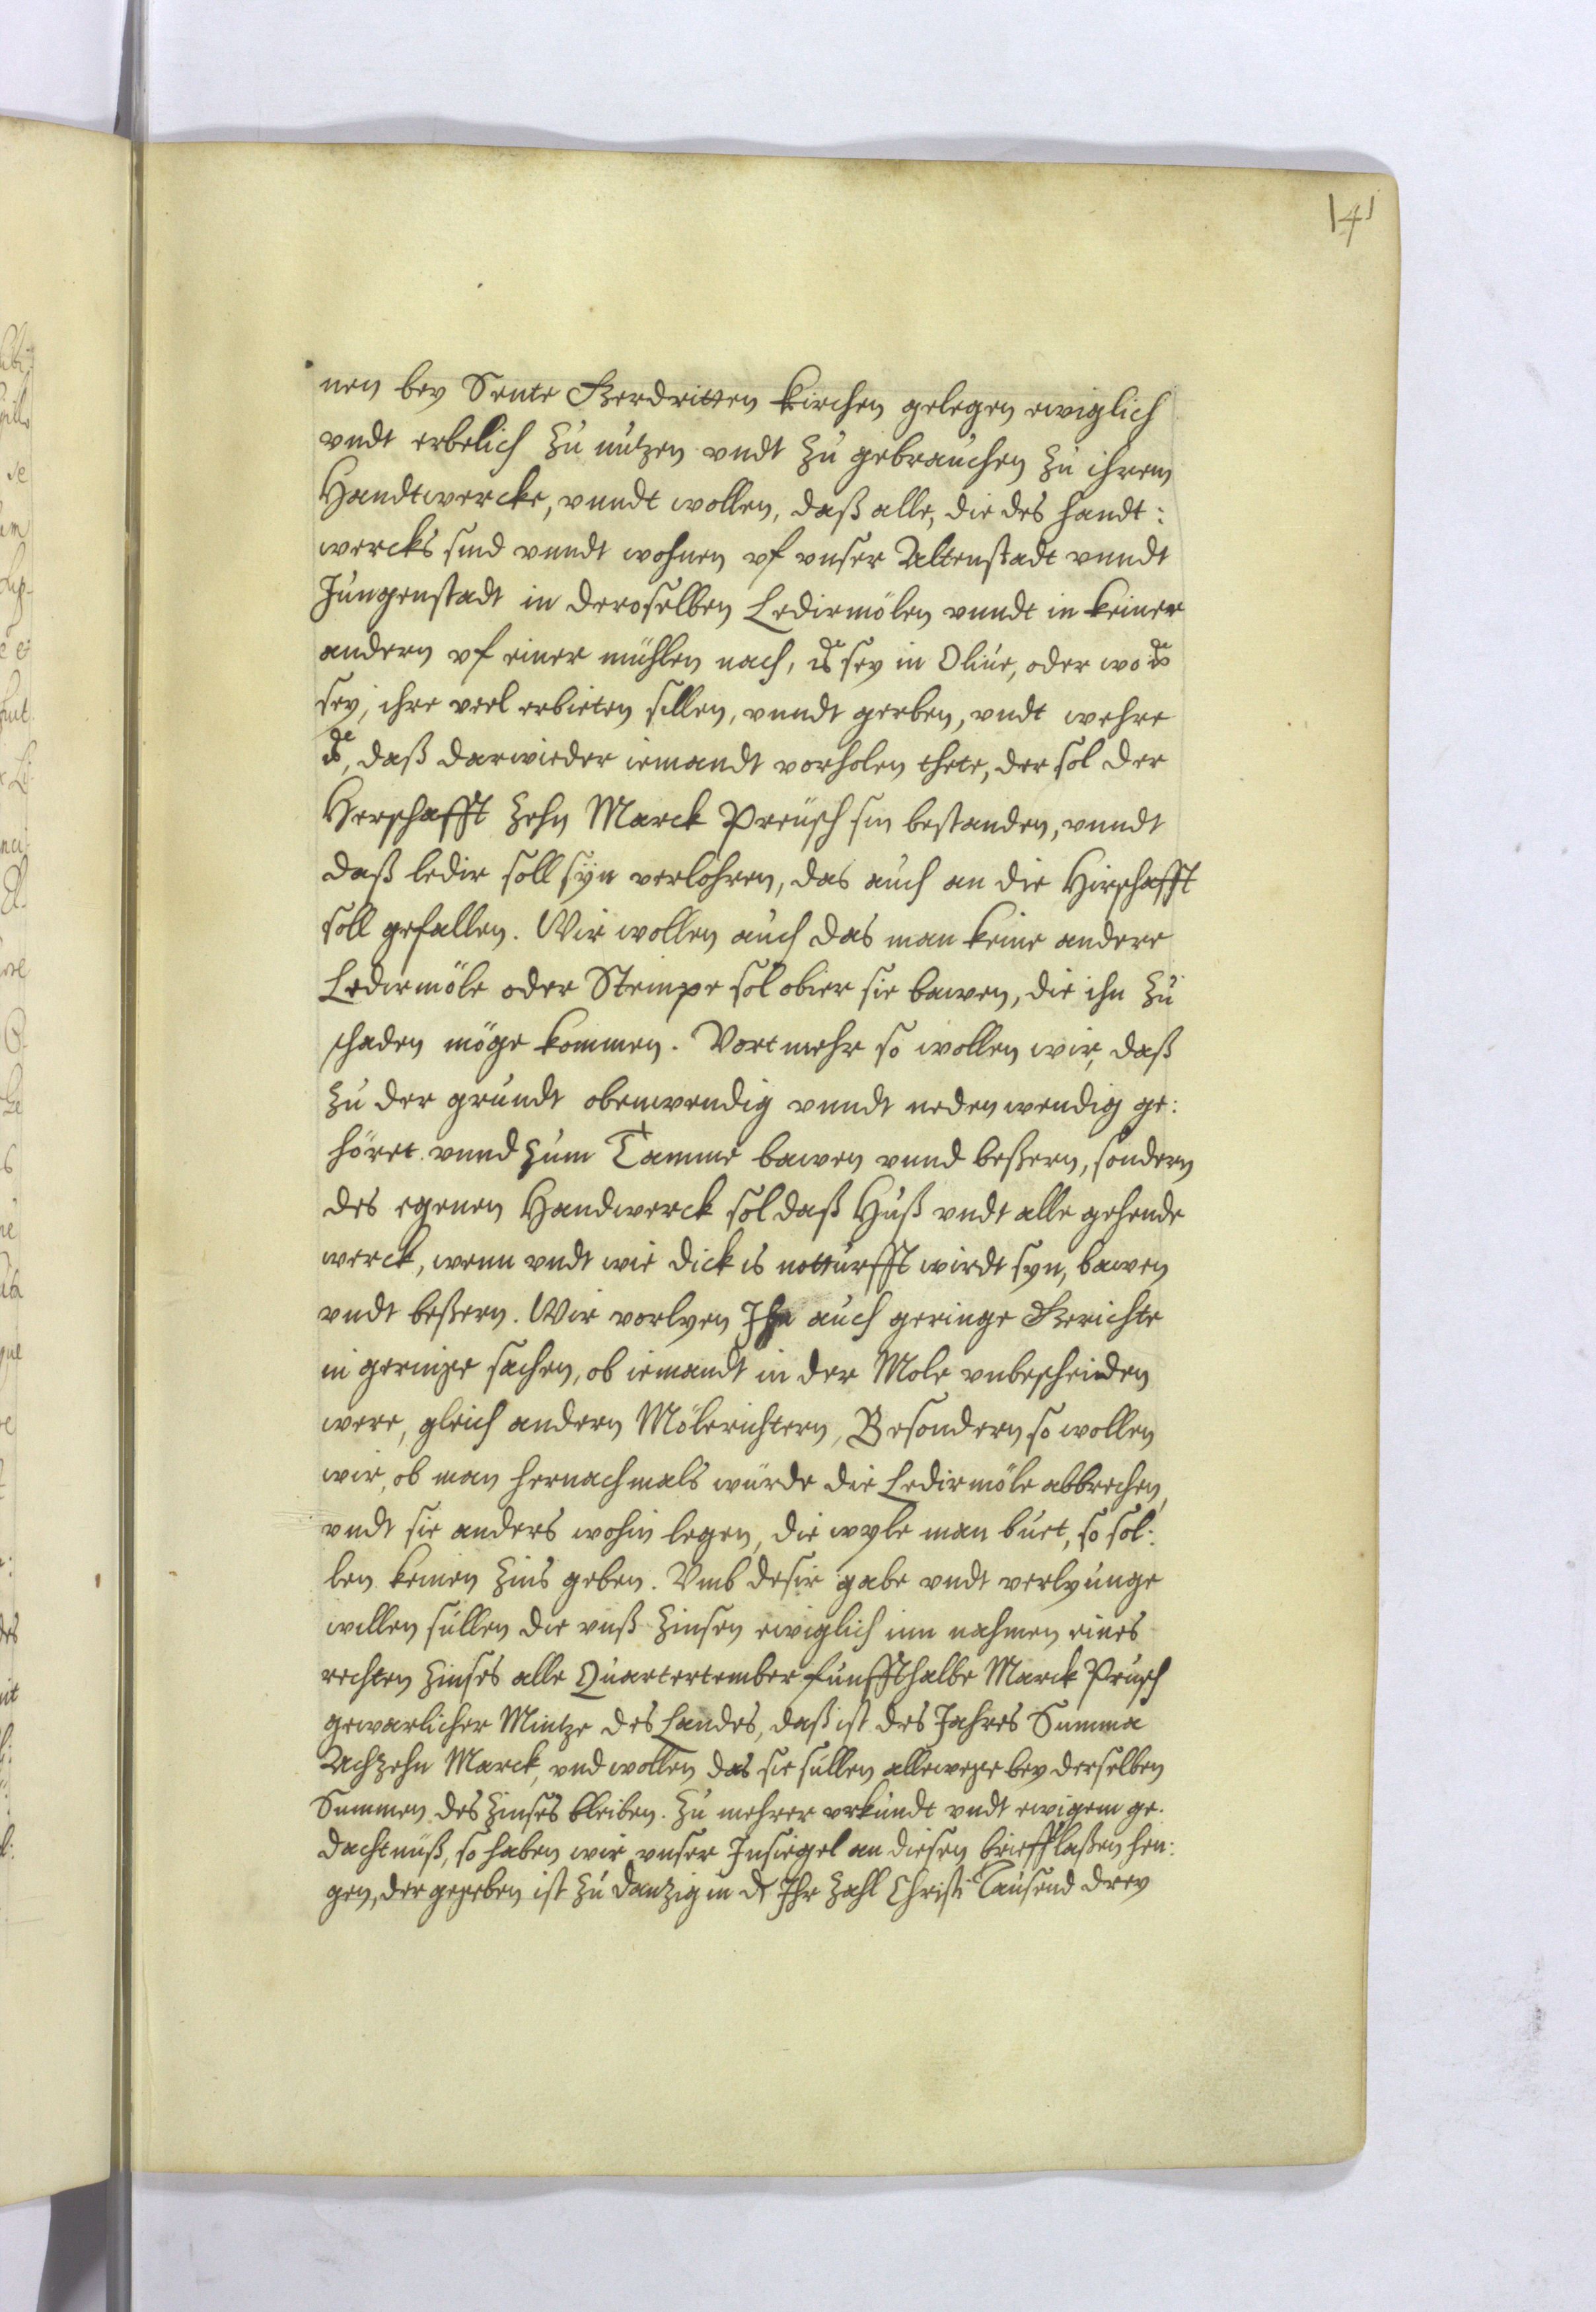 141
nen bey Sente Gerdritten kirchen gelegen ewiglich
vndt erbelich zu nutzen vndt zu gebrauchen zu ihrem
Handtwercke, vnndt wollen, daß alle, die des handt:
wercks sind vnndt wohnen vf vnser Altenstadt vnndt
Jungenstadt in deroselben Ledirmölen vnndt in keiner
andern vf einer mühlen nach, is sey in Oliue, oder wo is
sey, ihre veel erbieten sillen, vnndt gerben, vndt wehre
is, daß darwieder iemandt vorholen thete, der sol der
Herschafft zehn Marck Preüsch sin bestanden, vnndt
daß ledir soll sÿn verlohren, das auch an die Hirschafft
soll gefallen. Wir wollen auch das man keine andere
Ledirmöle oder Steimpe sol obier sie bawen, die ihn zu
schaden möge kommen. Vortmehr so wollen wir, daß
zu der grundt obenwendig vnndt nedenwendig ge:
höret vnnd zum Tamme bawen vnnd beßern, sondern
des egenen Handwerck sol daß Huß vndt alle gehende
werck, wenn vndt wie dick is notturfft wirdt syn, bawen
vndt beßern. Wir vorlyen Ihn auch geringe Gerichte
in geringe sachen, ob iemandt in der Mole vnbescheiden
were, gleich andern Mölerichtern, Besondern so wollen
wir, ob man hernachmals würde die Ledirmöle abbrechen,
vndt sie anders wohin legen, die wyle man buet, so sol:
len keinen Zins geben. Vmb desir gabe vndt verlyunge
willen süllen die vnß Zinsen ewiglich inn nahmen eines
rechten Zinses alle Quartertember fünffthalbe Marck Prüsch
gewarlicher Mintze des Landes, daß ist des Jahres Summa
Achzehn Marck, vnd wollen das sie süllen allewege bey derselben
Summen des Zinses bleiben. Zu mehrer vrkundt vndt ewigem ge:
dachtnüß, so haben wir vnser Insiegel an diesen brieff laßen hen:
gen, der gegeben ist zu Dantzig in d Ihr Zahl Christi Tausend drey